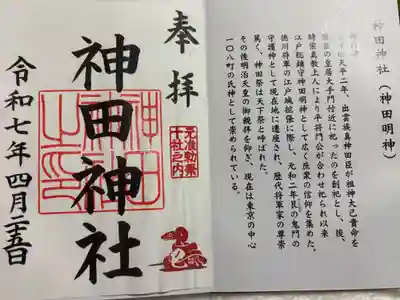 神田神社(神田明神)
天平二年、出雲族真神田臣が祖神大己貴命を
皇居大手門付近に祀ったのを創祀とし、後、
時宗真教上人により平将門公が合わせ祀られ以来
江戸総鎮守神田明神として広く庶業の信仰を集めた。
徳川将軍の江戸城拡張に際し、元和二年艮の鬼門の
守護神として現在地に遷座され、歴代将軍家の尊崇
篤く、神田祭は天下祭と呼ばれた。
その後明治天皇の御親拝を仰ぎ、現在は東京の中心
一〇八町の氏神として崇められている。
奉拝
元准勅祭
十社之内
神田神社
令和七年四月二五日